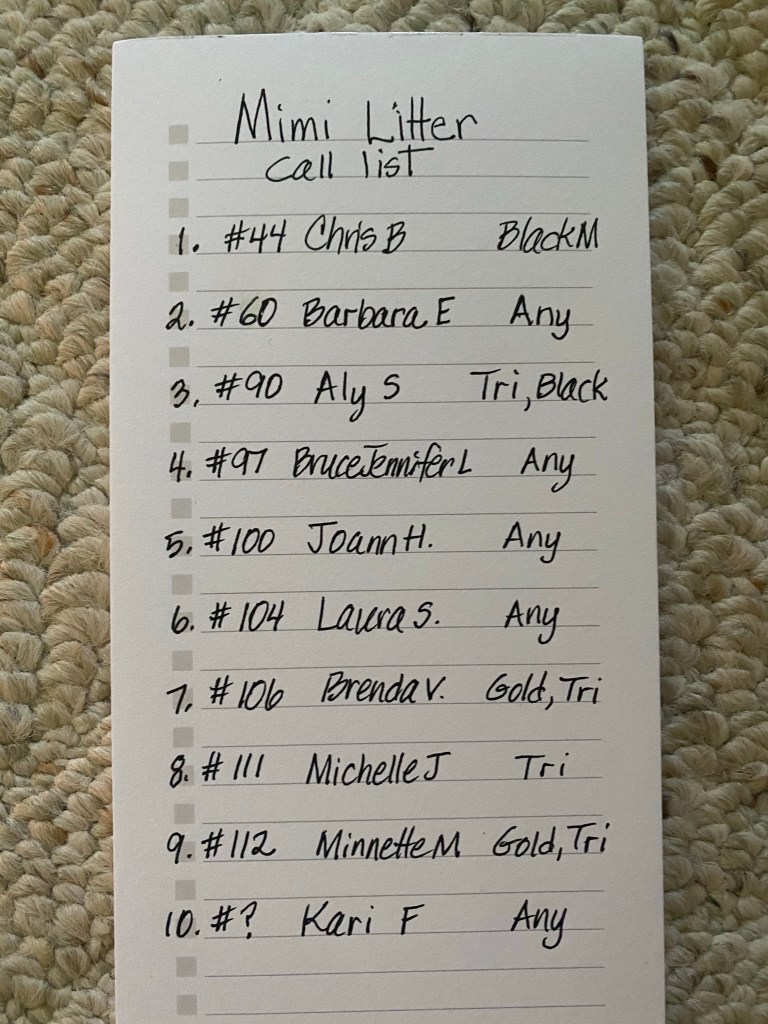 Mimi Litter
call list
1. #44 Chris B Black M
2. #60 Barbara E Any
3. #90 Aly S Tri, Black
4. #97 Bruce Jennifer L Any
5. #100 Joann H. Any
6. #104 Laura S. Any
7. #106 Brenda V. Gold, Tri
8. #111 Michelle J Tri
9. #112 Minnette M Gold, Tri
10. #? Kari F Any